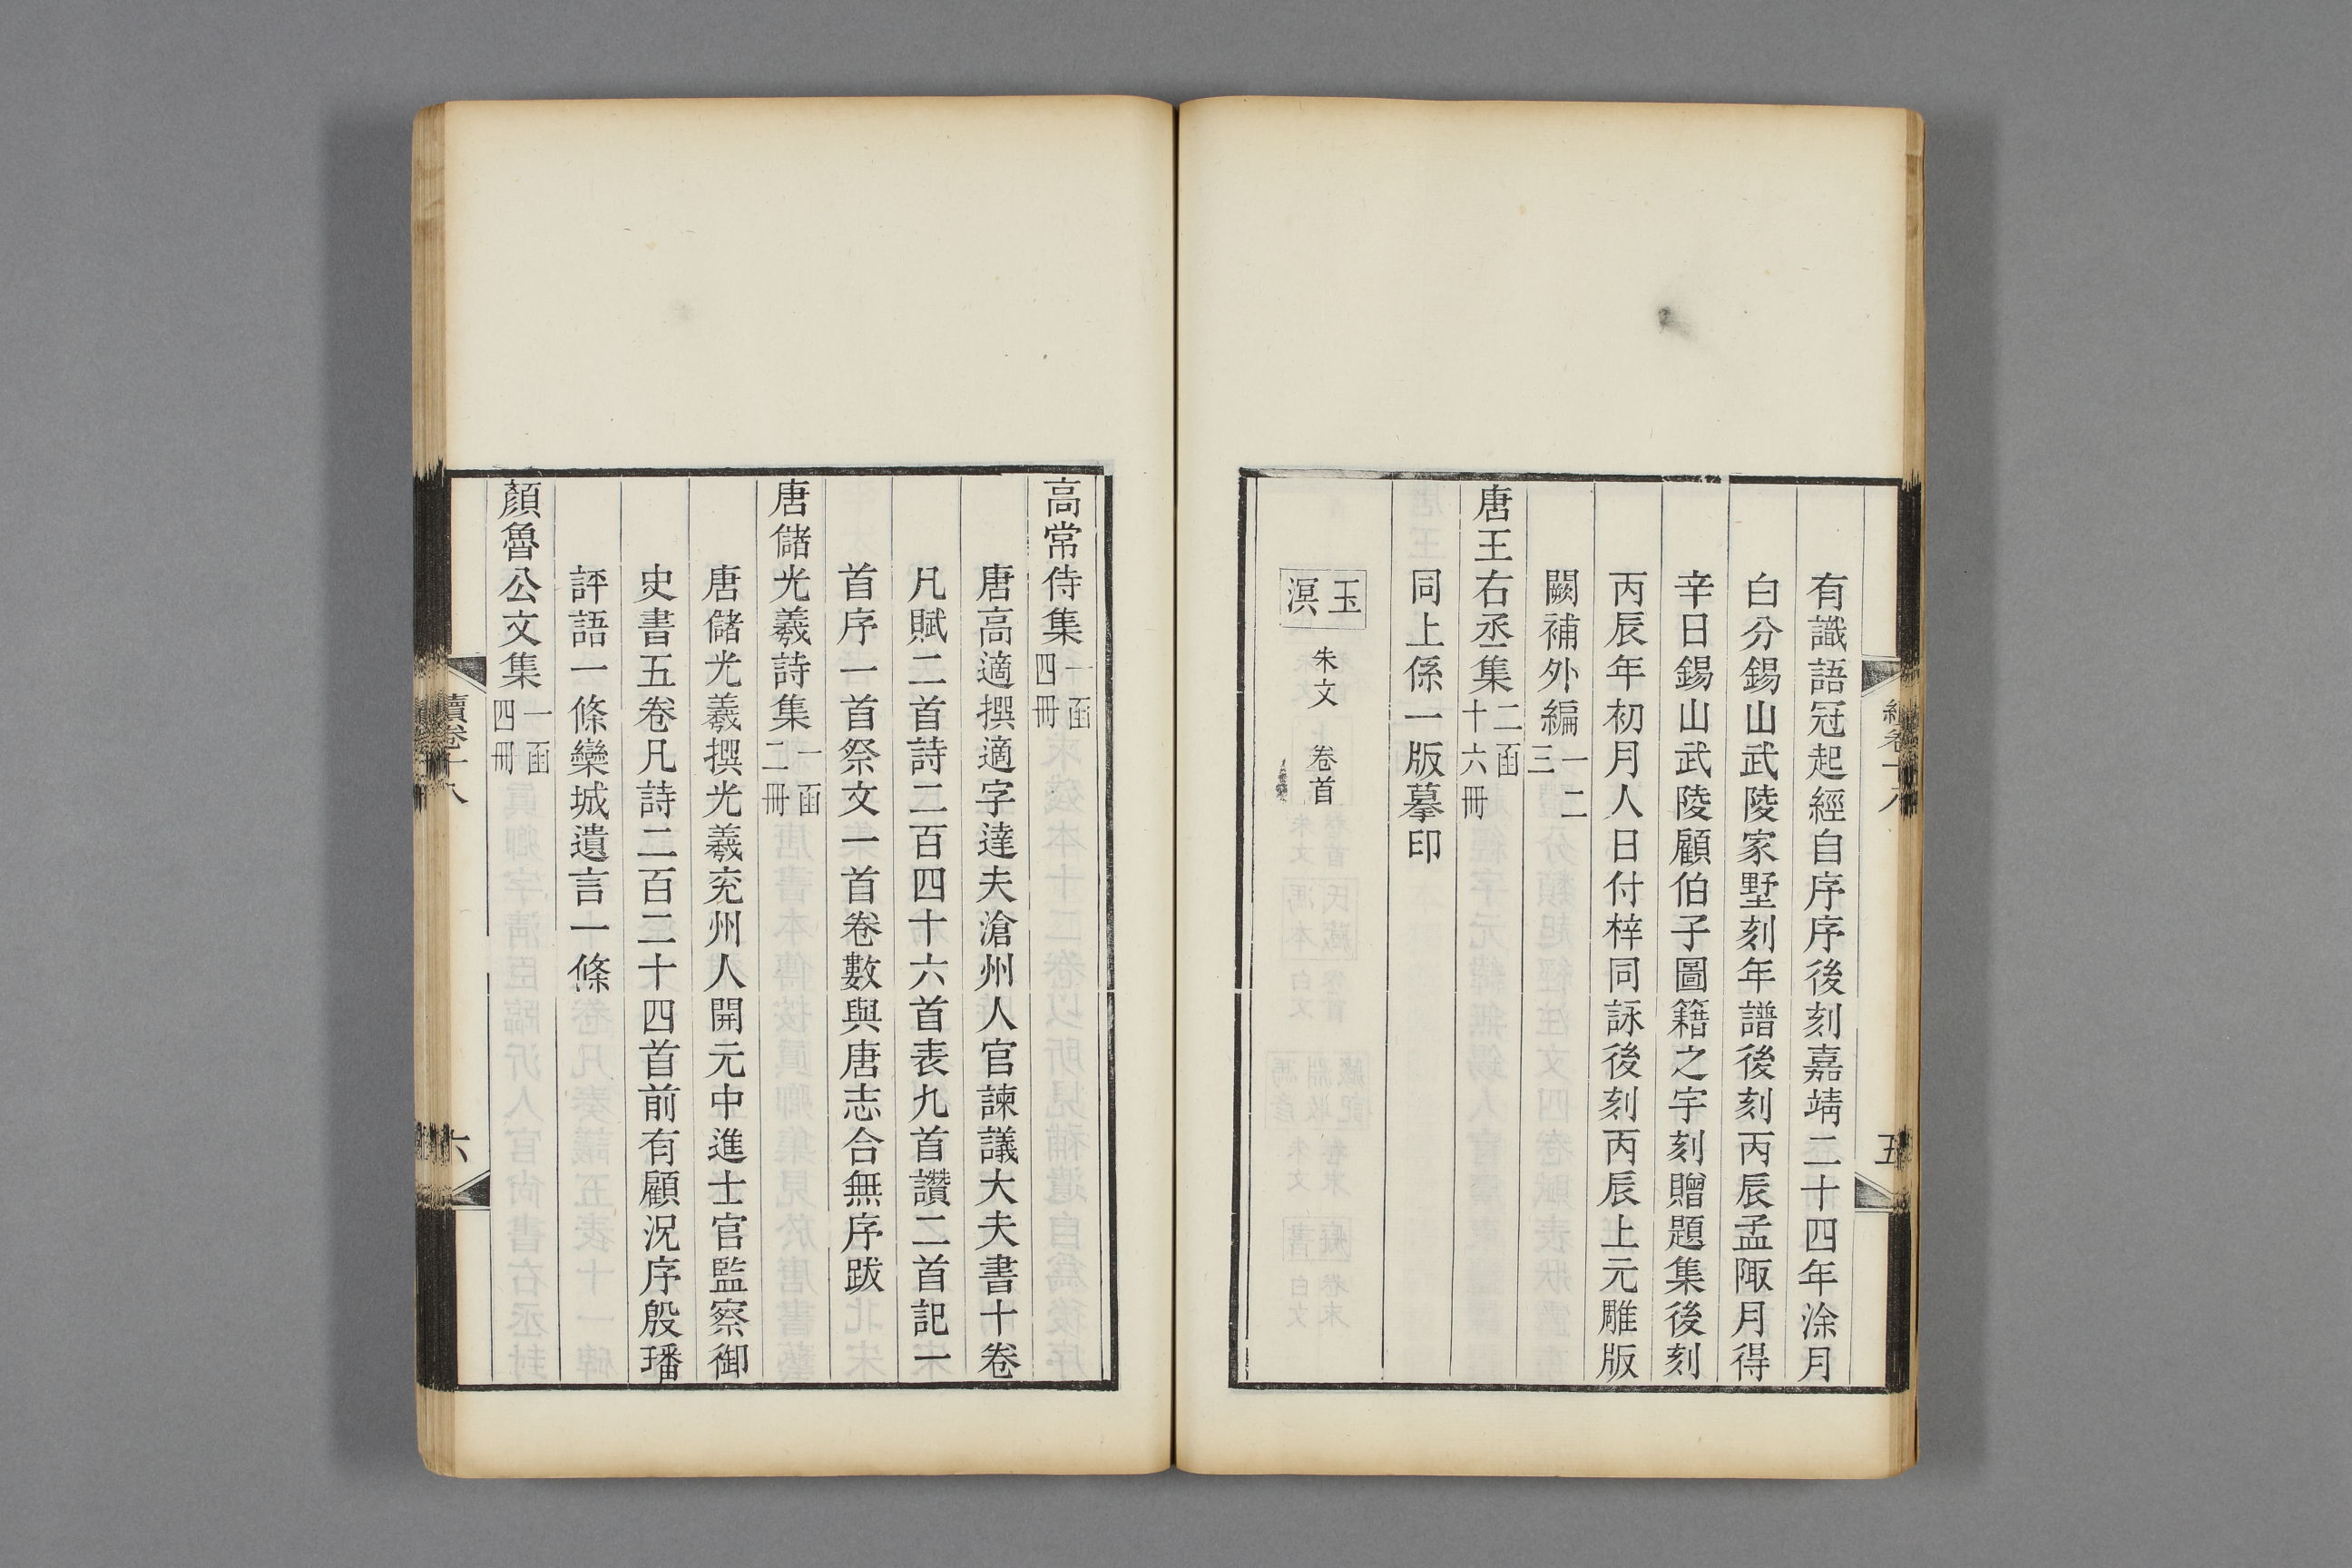 有識語冠起經自序序後刻嘉靖二十四年涂月
白分錫山武陵家墅刻年譜後刻丙辰孟陬月得
辛日錫山武陵顧伯子圖籍之宇刻贈題集後刻
丙辰年初月人日付梓同詠後刻丙辰上元雕版
闕補外編一二三
唐王右丞集二函十六冊
同上係一版摹印
玉溟 朱文 卷首
五
高常侍集一函四冊
唐高適撰適字達夫滄州人官諫議大夫書十卷
凡賦二首詩二百四十六首表九首讚二首記一
首序一首祭文一首卷數與唐志合無序跋
唐儲光羲詩集一函二冊
唐儲光羲撰光羲兗州人開元中進士官監察御
史書五卷凡詩二百二十四首前有顧況序殷璠
評語一條欒城遺言一條
顏魯公文集一函四冊
續卷十八
六